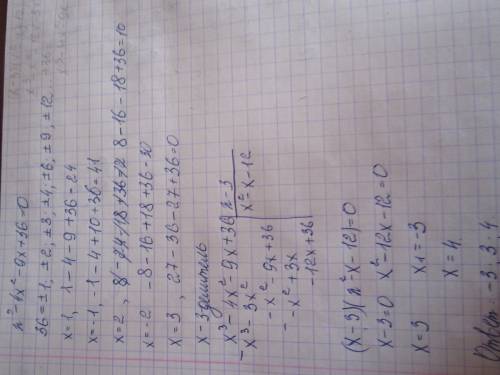 x³-4x²-9x+36=0
36=±1, ±2, ±3, ±4, ±6, ±9, ±12,
x=1, 1-4-9+36=24
x=-1, -1-4+10+36=41
x=2, 8-16-18+36=10
x=-2 -8-16+18+36=30
x=3, 27-36-27+36=0
x-3 делитель
x³-4x²-9x+36 | x-3
x³-3x² x²-x-12
-x²-9x+36
-x²+3x
-12x+36
(x-3)(x²x-12)=0
x-3=0 x²-12x-12=0
x=3 x1=-3
x=4
Ответ -3, 3, 4